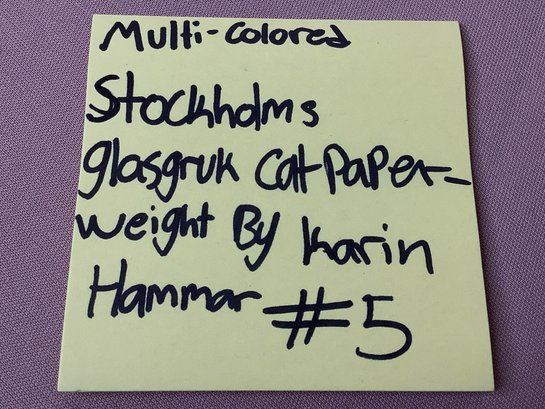 Multi-colored
Stockholms
glasgruk cat paper-
weight By Karin
Hammar #5